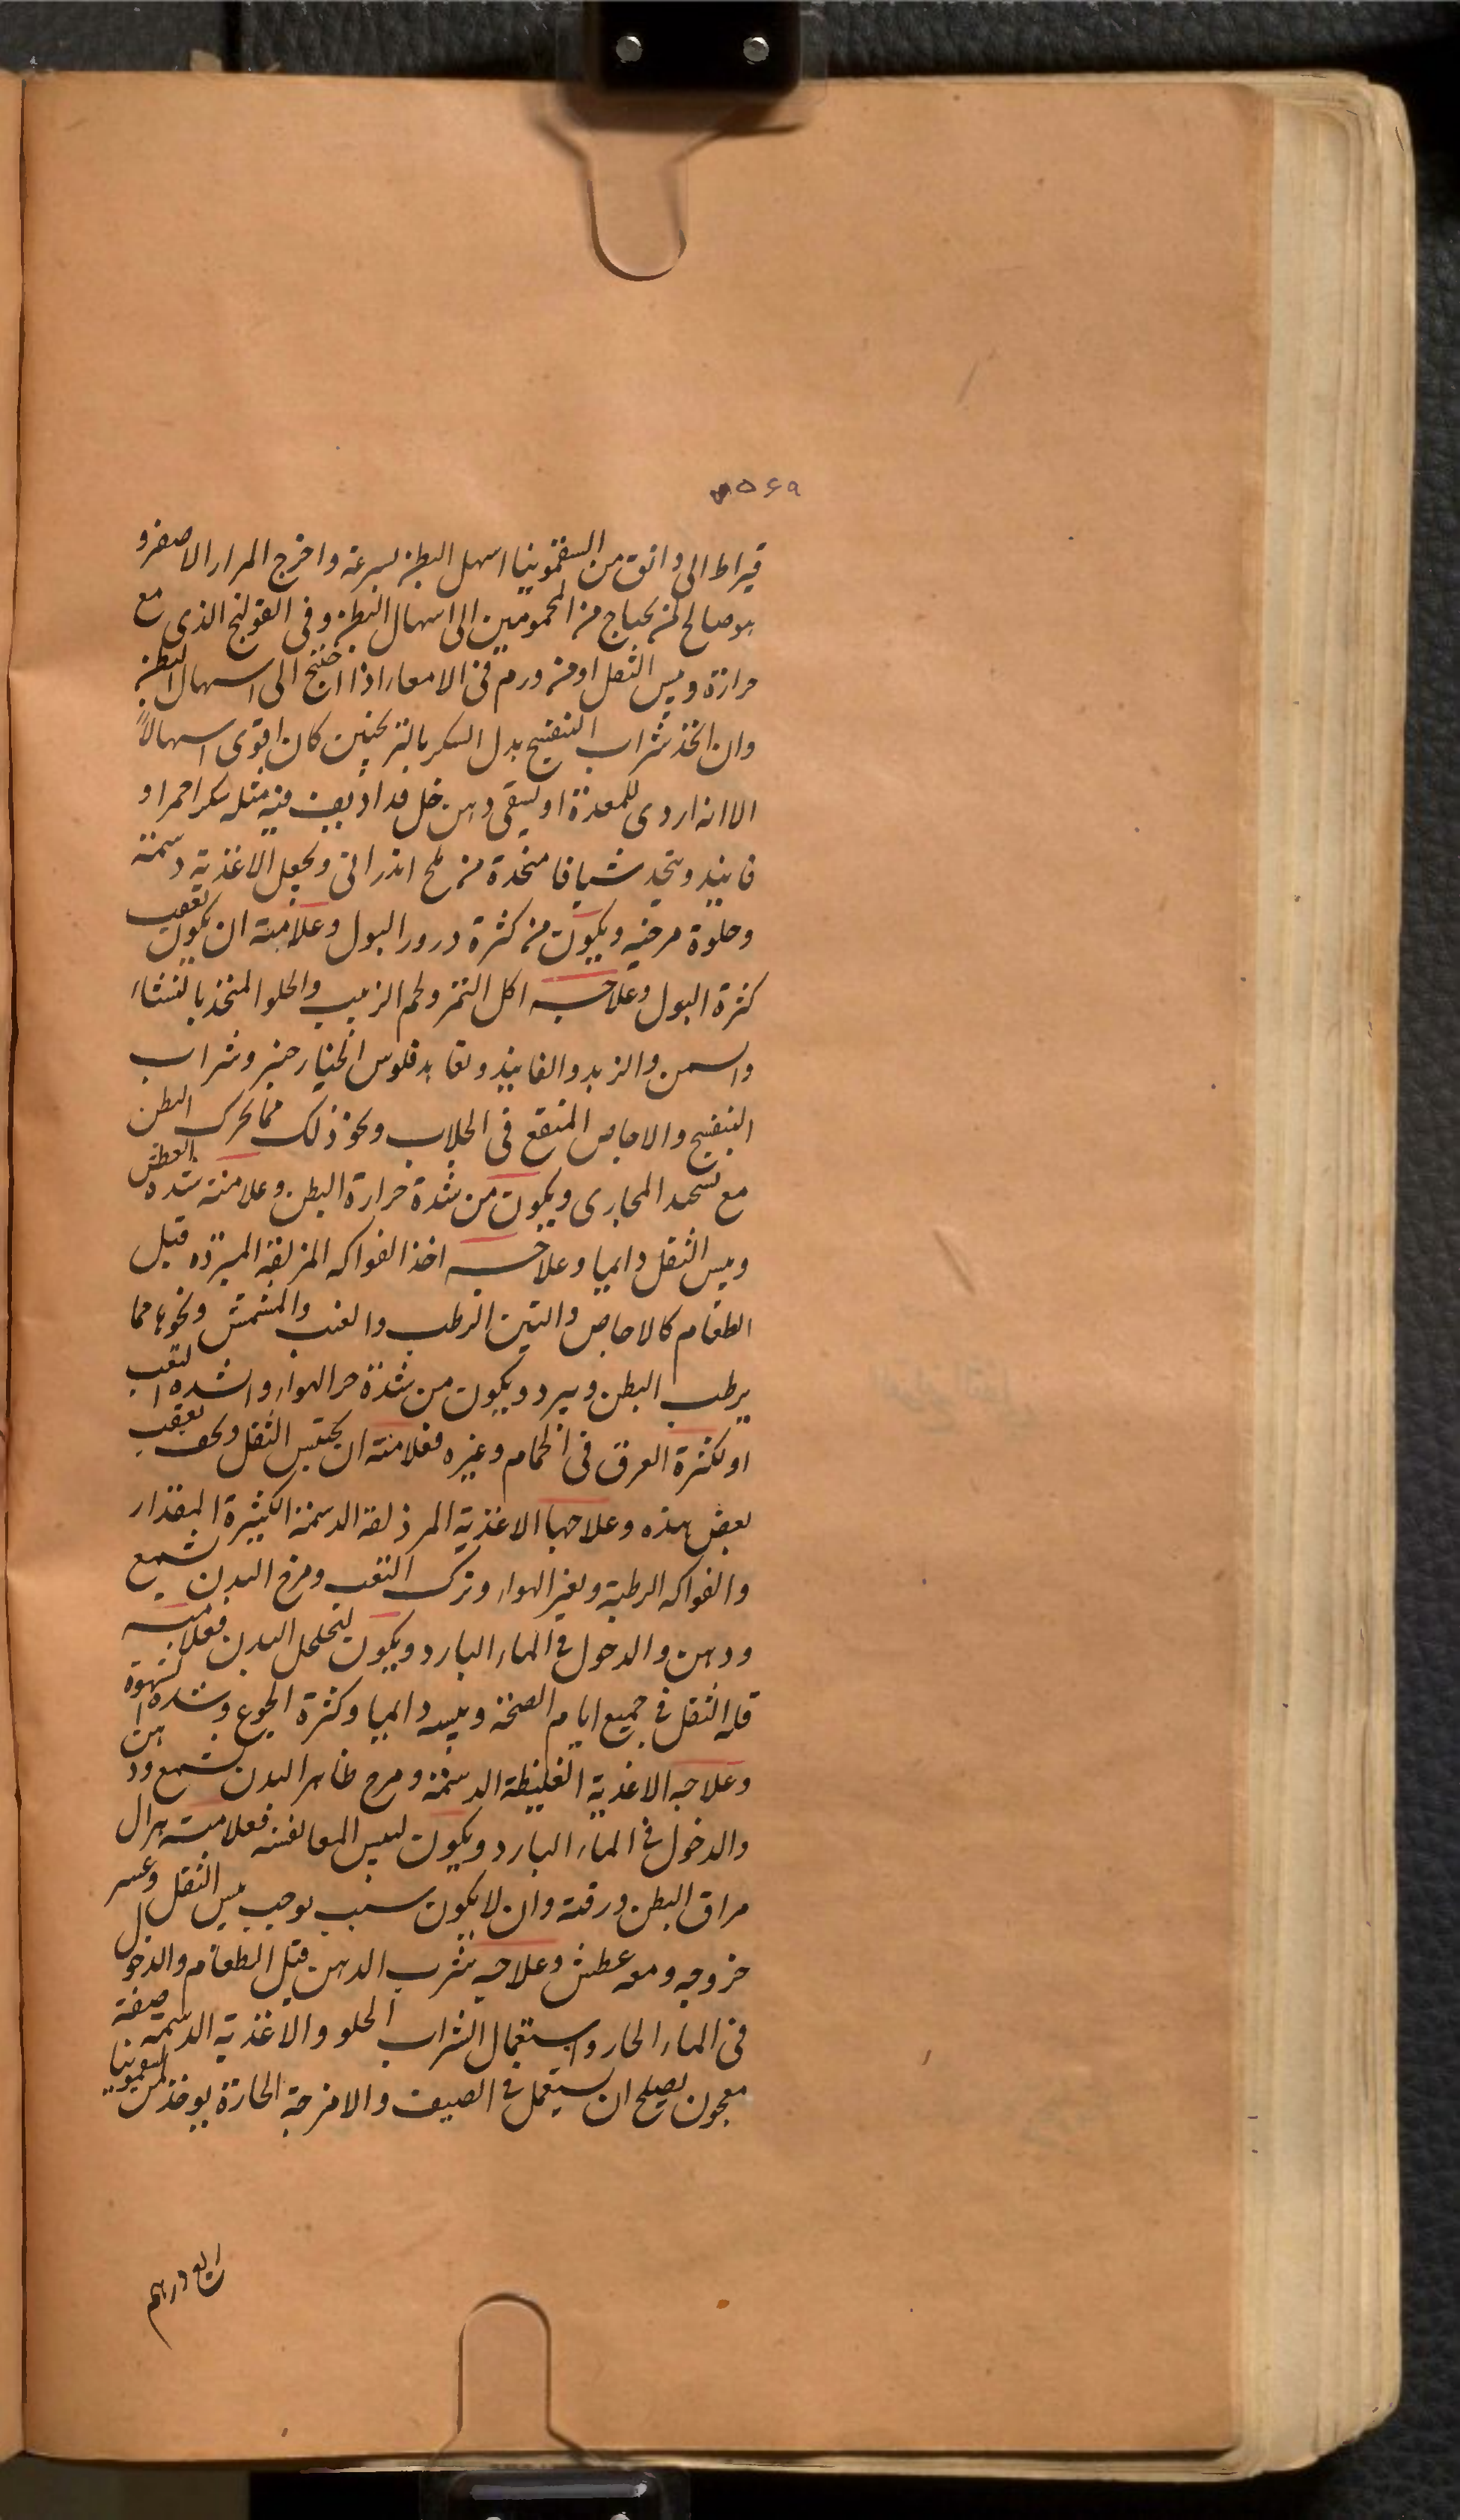 ۵۶۹
قيراط الى دانق من السقمونيا اسهل البطن بسرعة واخرج المرار الاصفر و
هو صالح لمن يحتاج من المحمومين الى اسهال البطن وفى القولنج الذى مع
حرارة ويبس الثفل او من ورم فى الامعاء اذا احتيج الى اسهال البطن
وان اتخذ شراب البنفسج بدل السكر بالترنجبين كان اقوى اسهالاً
الا انه اردى للمعدة او يسقى دهن خل قد اذيف فيه مثله سكر احمر او
فانيد ويتخذ شيافا متخذة من ملح اندرانى ويجعل الاغذية دسمة
وحلوة مرخيه ويكون من كثرة درور البول وعلامته ان يكون بعقب
كثرة البول وعلاجه اكل التمر ولحم الزبيب والحلو المتخذ بالنشاء
والسمن والزبد والفانيذ ولعابه فلوس الخيار شنبر وشراب
البنفسج والاجاص المنقع فى الجلاب ونحو ذلك مما يحرك البطن
مع المجارى ويكون من شدة حرارة البطن وعلامته شدة العطش
ويبس الثفل دايما وعلاجه اخذ الفواكه المزلقة المبردة قبل
الطعام كالاجاص والتين الرطب والعنب والمشمش ونحوها مما
يرطب البطن ويبرد ويكون من شدة حر الهواء والشدة التعب
او لكثرة العرق فى الحمام وغيره فعلامته ان يحتبس الثفل ويجف بعقب
بعض هذه وعلاجها الاغذية المزلقة الدسمة الكثيرة المقدار
والفواكه الرطبة وتغير الهواء وترك التعب ومرخ البدن بشمع
ودهن والدخول فى الماء البارد ويكون لتخلخل البدن فعلامته
قلة الثفل فى جميع ايام الصحة ويبسه دايما وكثرة الجوع وشدة الشهوة
وعلاجه الاغذية الغليظة الدسمة ومرخ ظاهر البدن بشمع ودهن
والدخول فى الماء البارد ويكون ليبس المعا نفسه فعلامته هزال
مراق البطن ورقته وان لا يكون سبب يوجب يبس الثفل وعسر
خروجه ومعه عطش وعلاجه شرب الدهن قبل الطعام والدخول
فى الماء الحار واستعمال الشراب الحلو والاغذية الدسمة صفة
معجون يصلح ان يستعمل فى الصيف والامزجة الحارة يوخذ من السقمونيا
دراهم